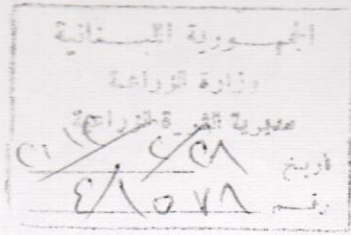 الجمهورية اللبنانية
وزارة الزراعة
مديرية الثروة الزراعية
تاريخ
رقم ٤/١٥٧٨